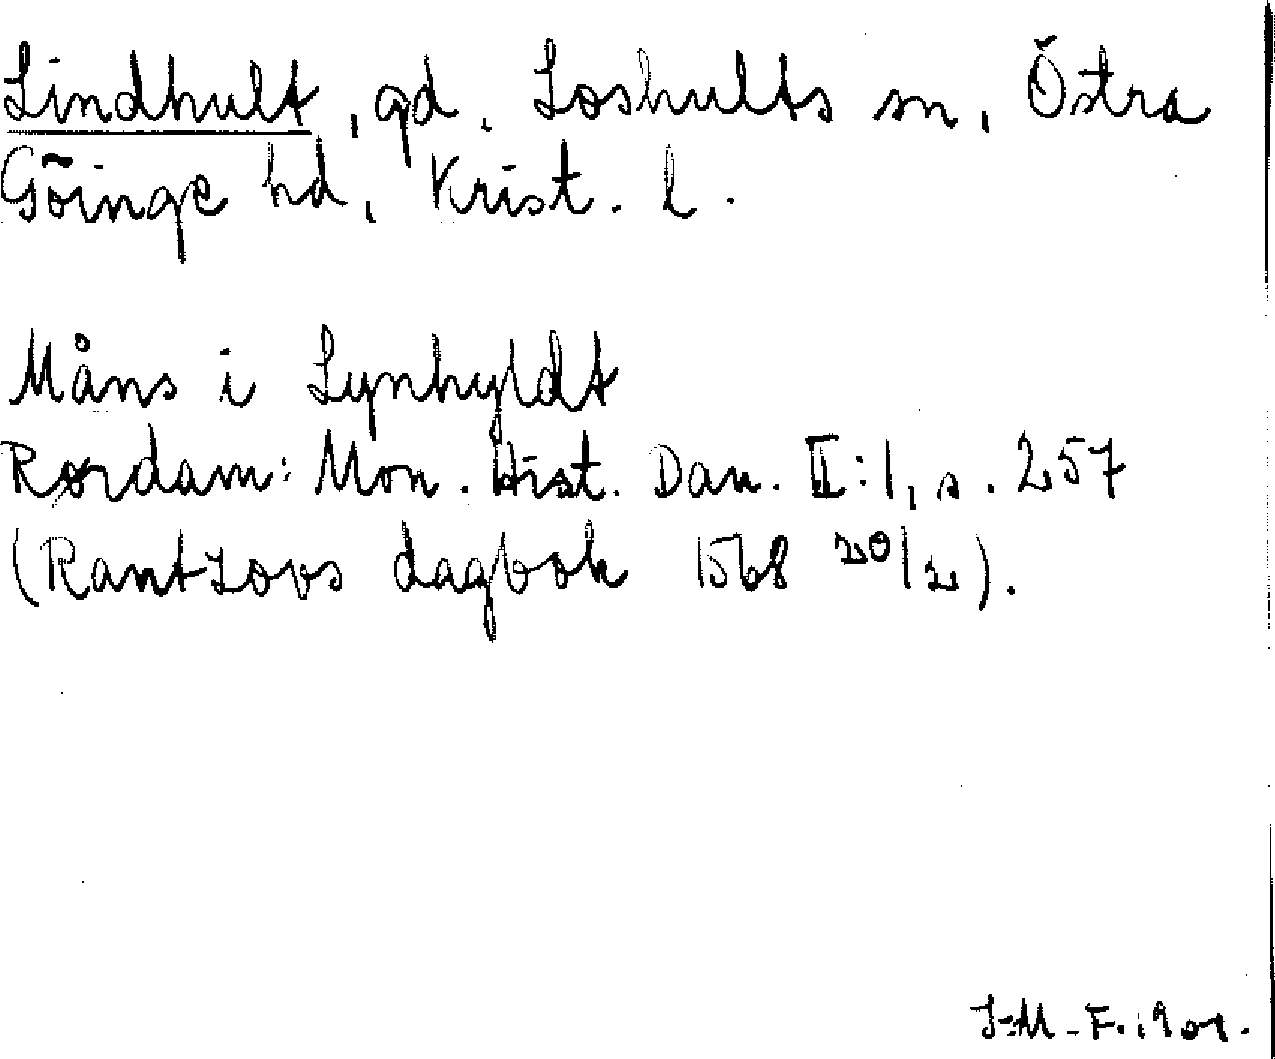 Lindhult, gd, Loshults sn, Östra
Göinge hd, Krist. l.
Måns i Lynhyldt
Rørdam: Mon. Hist. Dan. II:1, s. 257
(Rantzovs dagbok 1568 20/2).